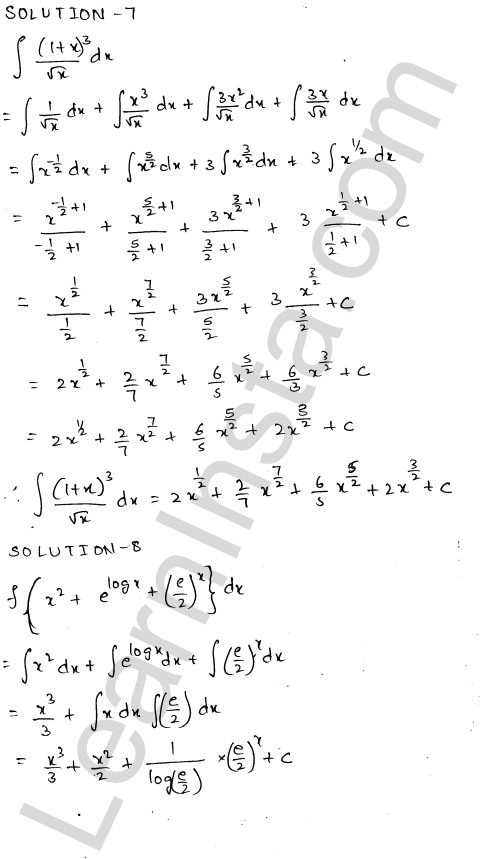 SOLUTION -7
∫ (1+x)³/√x dx
= ∫ 1/√x dx + ∫ x³/√x dx + ∫ 3x²/√x dx + ∫ 3x/√x dx
= ∫x^(-1/2) dx + ∫x^(5/2) dx + 3∫x^(3/2) dx + 3∫x^(1/2) dx
= x^(-1/2 +1)/(-1/2 +1) + x^(5/2 +1)/(5/2 +1) + 3x^(3/2 +1)/(3/2 +1) + 3 x^(1/2 +1)/(1/2 +1) + c
= x^(1/2)/(1/2) + x^(7/2)/(7/2) + 3x^(5/2)/(5/2) + 3 x^(3/2)/(3/2) + c
= 2x^(1/2) + 2/7 x^(7/2) + 6/5 x^(5/2) + 6/3 x^(3/2) + c
= 2x^(1/2) + 2/7 x^(7/2) + 6/5 x^(5/2) + 2x^(3/2) + c
∴ ∫ (1+x)³/√x dx = 2x^(1/2) + 2/7 x^(7/2) + 6/5 x^(5/2) + 2x^(3/2) + c
SOLUTION-8
∫{x² + e^(log x) + (e/2)^x} dx
= ∫x² dx + ∫e^(log x) dx + ∫(e/2)^x dx
= x³/3 + ∫x dx ∫(e/2) dx
= x³/3 + x²/2 + 1/log(e/2) × (e/2)^x + c
Learninsta.com